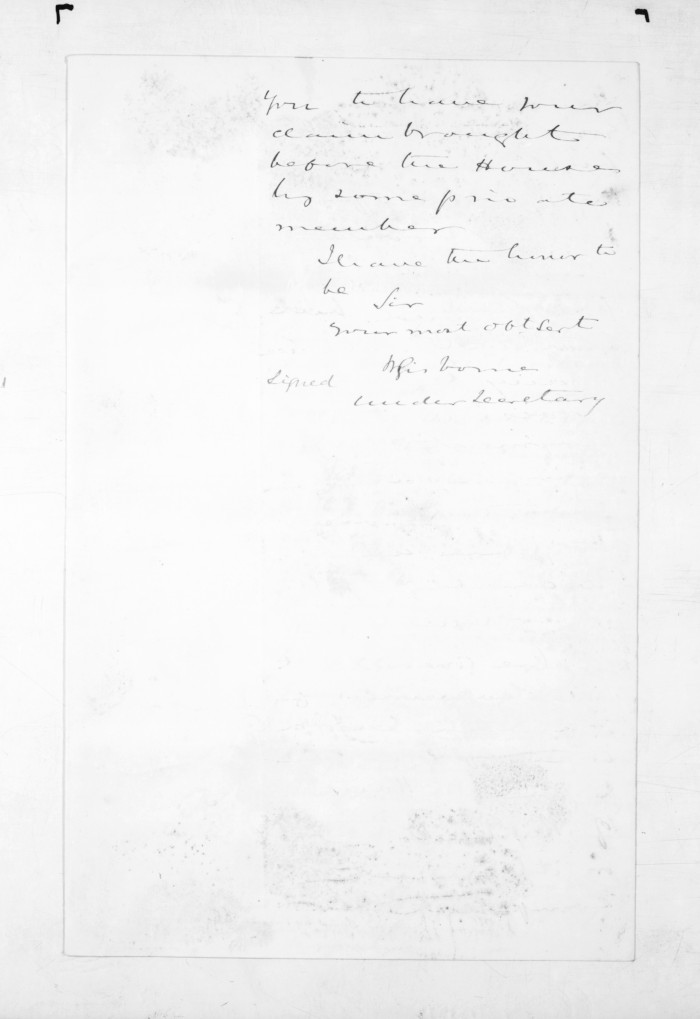 you to have your
claim brought
before the Houses
by some private
member
I have the honor to
be Sir
your most obt Sert
Signed WGisborne
under Secretary